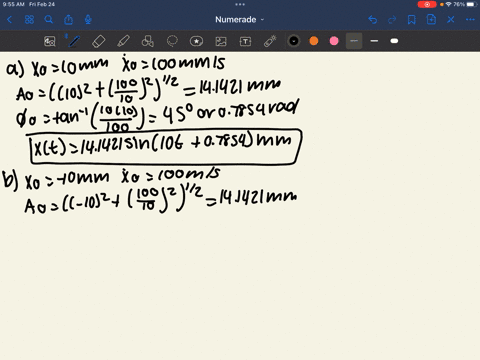 9:55 AM Fri Feb 24
86%
Numerade
a) x₀=10mm ẋ₀=100mm/s
A₀=((10)²+(100/10)²)^1/2=14.1421mm
φ₀=tan⁻¹(10(10)/100)=45° or 0.7854rad
x(t)=14.1421sin(10t+0.7854)mm
b) x₀=-10mm ẋ₀=100m/s
A₀=((-10)²+(100/10)²)^1/2=14.1421mm